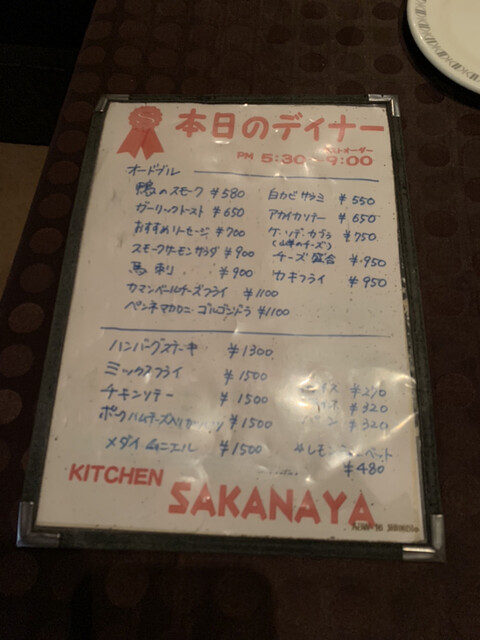 S 本日のディナー
ラストオーダー
PM 5:30~9:00
オードブル
鴨のスモーク ¥580
ガーリックトースト ¥650
おすすめソーセージ ¥700
スモークサーモンサラダ ¥900
馬刺 ¥900
カマンベールチーズフライ ¥1100
ペンネマカロニ ゴルゴンゾラ ¥1100
白カビサラミ ¥550
アカイカソテー ¥650
ケソデ.カブラ ¥750
(山羊のチーズ)
チーズ盛合 ¥950
カキフライ ¥950
ハンバーグステーキ ¥1300
ミックスフライ ¥1500
チキンソテー ¥1500
ポークハムチーズ入り ¥1500
メダイ ムニエル ¥1500
ライス ¥270
¥320
パン ¥320
レモンシャーベット
¥480
KITCHEN
SAKANAYA